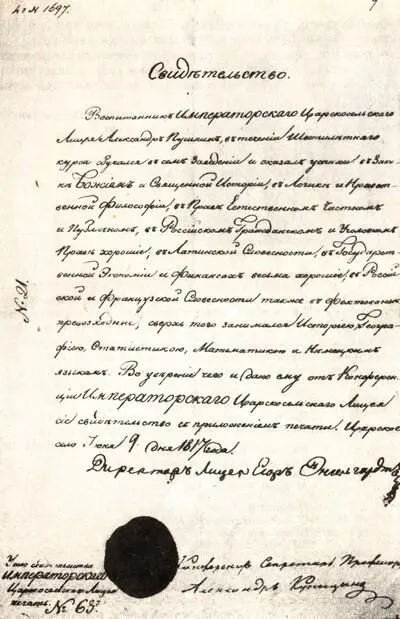 Свидѣтельство.
Воспитанникъ Императорскаго Царскосельскаго
Лицея Александръ Пушкинъ, въ теченіи Шестилѣтняго
курса обучался въ семъ Заведеніи и оказалъ успѣхи: въ Зако-
нѣ Божіемъ и Священной Исторіи, въ Логикѣ и Нравст-
венной Философіи, въ Правѣ Естественномъ Частномъ
и Публичномъ, въ Россійскомъ Гражданскомъ и Уголовномъ
Правѣ хорошіе; въ Латинской Словесности, въ Государст-
венной Экономіи и Финансахъ весьма хорошіе; въ Россій-
ской и Французской Словесности также въ Фехтованіи
превосходные; сверхъ того занимался Исторіею, Геогра-
фіею, Статистикою, Математикою и Нѣмецкимъ
языкомъ. Во увѣреніе чего и дано ему отъ Конферен-
ціи Императорскаго Царскосельскаго Лицея
сіе свидѣтельство съ приложеніемъ печати. Царское
село Іюня 9 дня 1817 года.
Директоръ Лицея Егоръ Энгельгардтъ
№ 21.
Конференцъ Секретарь Профессоръ
Александръ Куницынъ
Императорскаго
Царскосельскаго Лицея
печать. № 63.